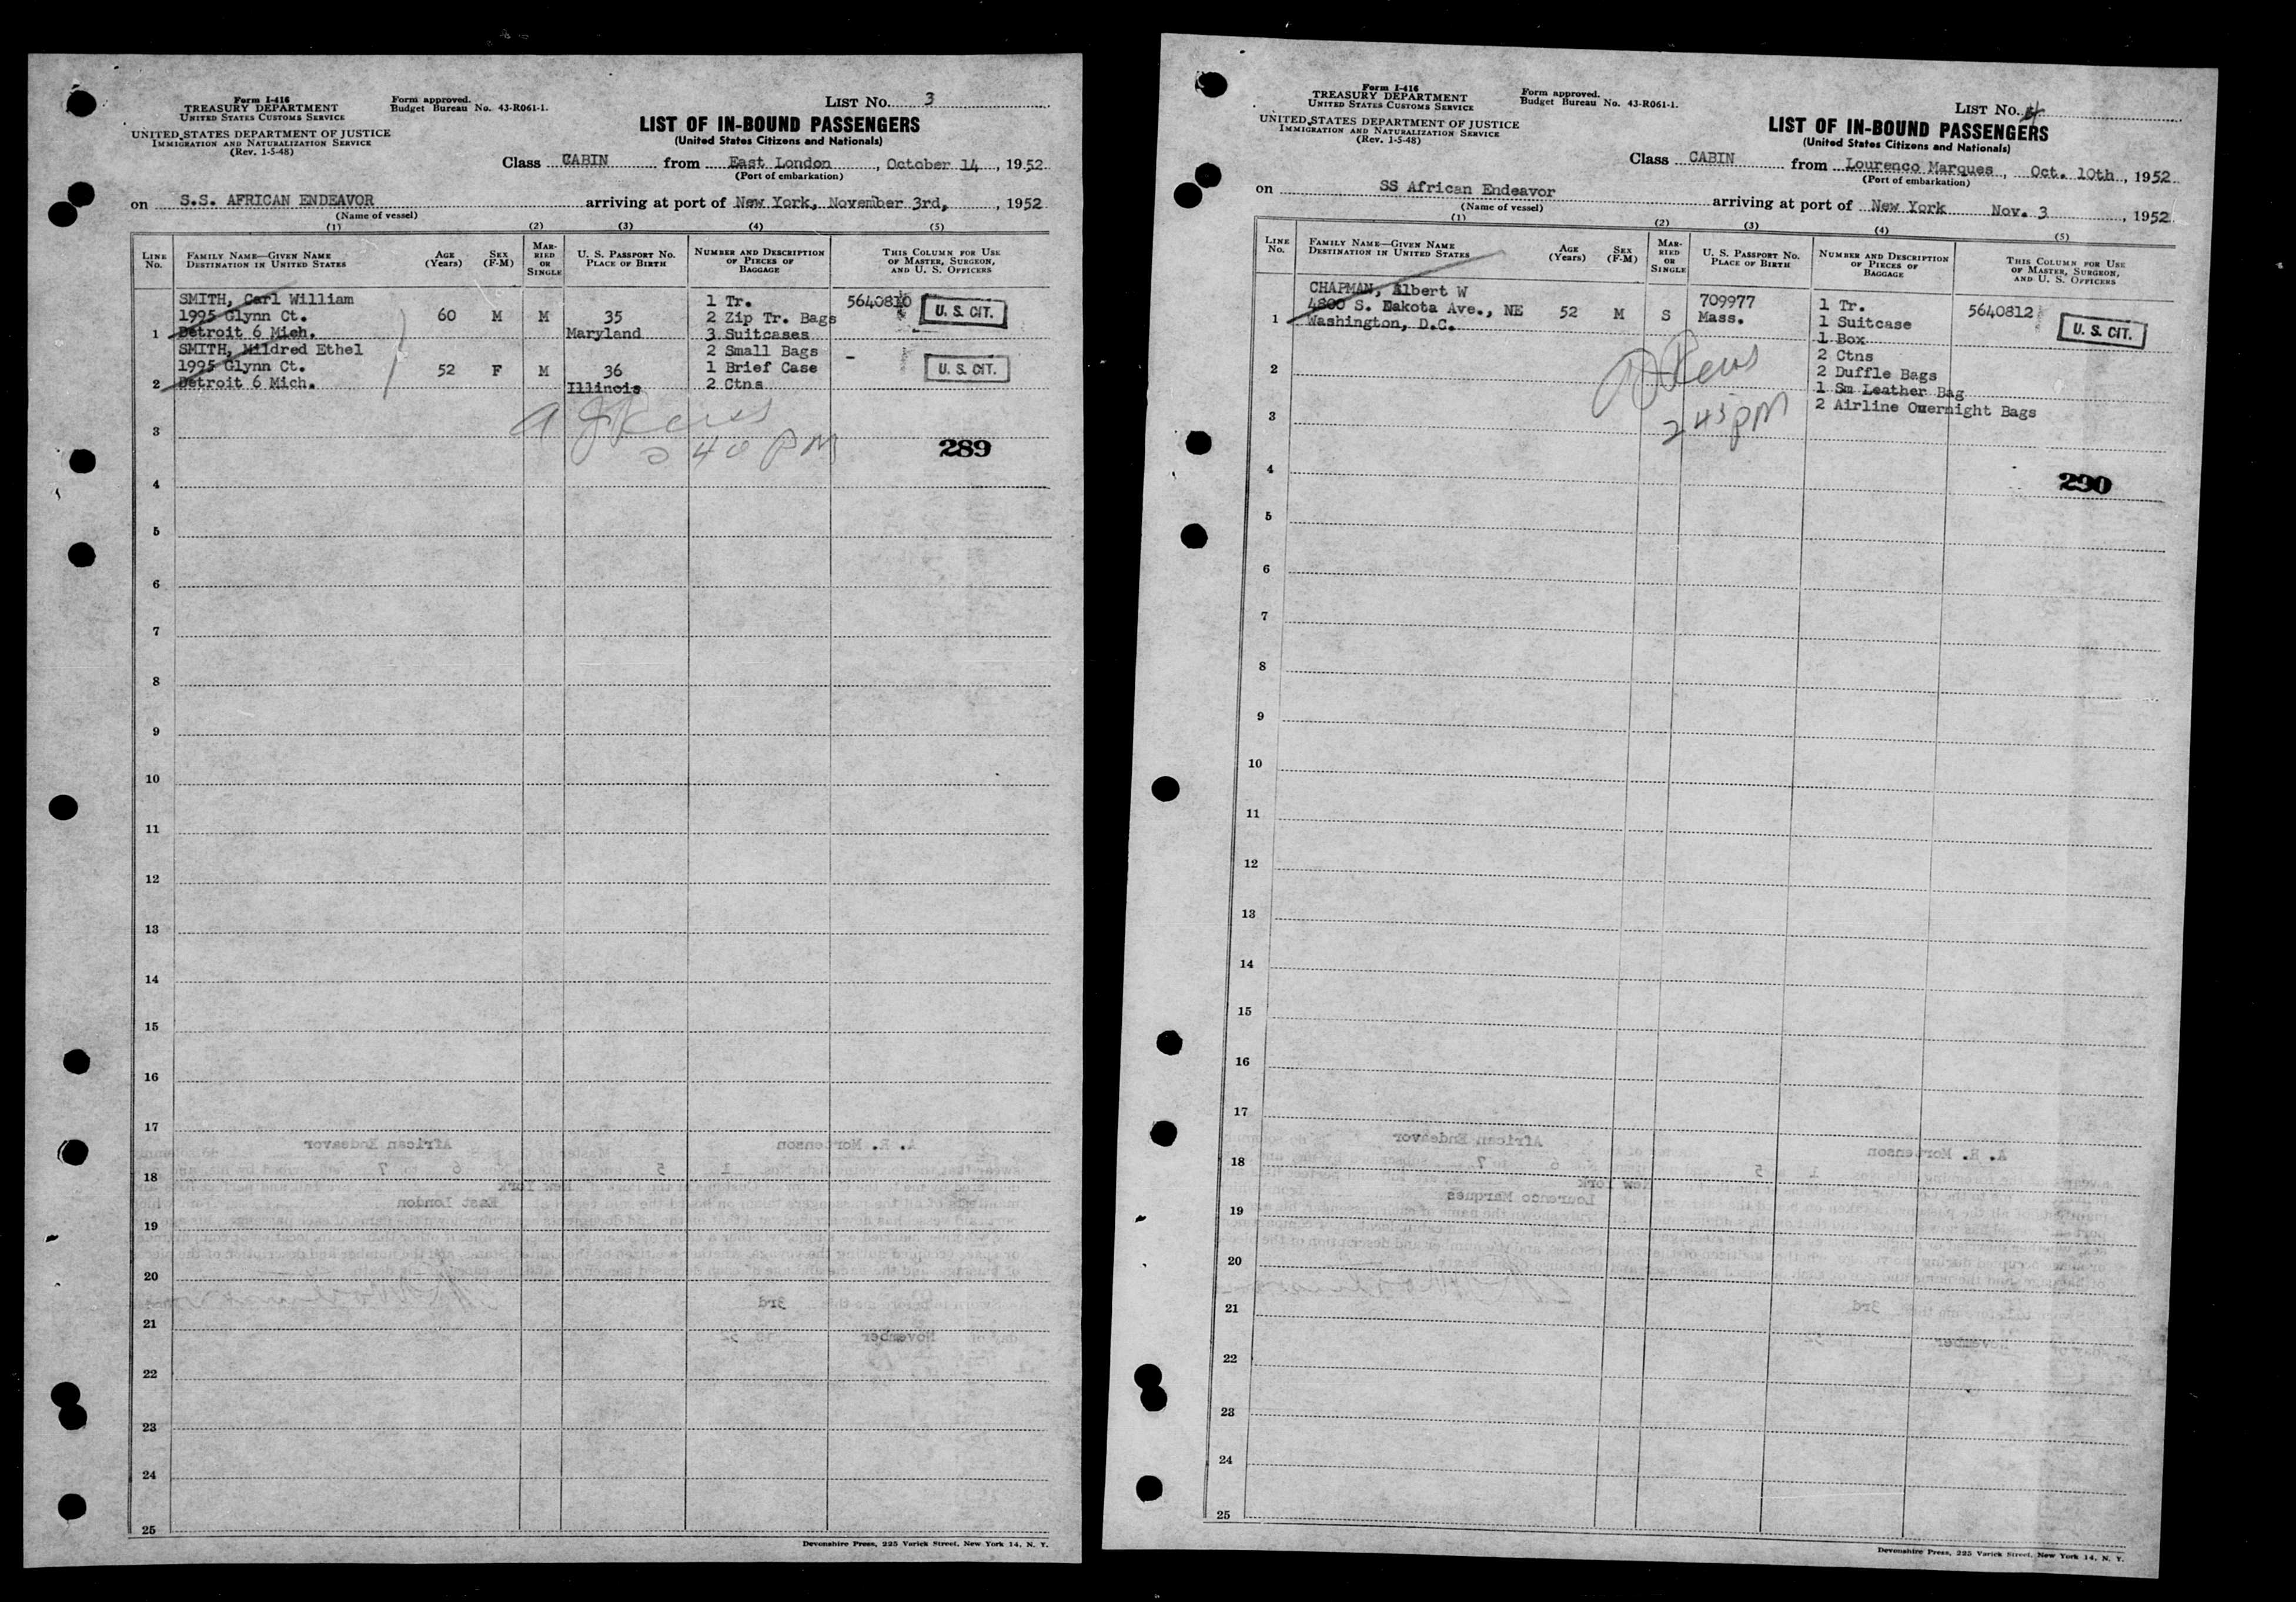 Form I-416
TREASURY DEPARTMENT
UNITED STATES CUSTOMS SERVICE
UNITED STATES DEPARTMENT OF JUSTICE
IMMIGRATION AND NATURALIZATION SERVICE
(Rev. 1-5-48)
Form approved.
Budget Bureau No. 43-R061-1.
LIST No. 3
LIST OF IN-BOUND PASSENGERS
(United States Citizens and Nationals)
Class CABIN from East London, October 14, 1952
(Port of embarkation)
on S.S. AFRICAN ENDEAVOR arriving at port of New York, November 3rd, , 1952
(Name of vessel)
(1) (2) (3) (4) (5)
LINE No.
FAMILY NAME—GIVEN NAME
DESTINATION IN UNITED STATES
AGE (Years)
SEX (F-M)
MARRIED OR SINGLE
U. S. PASSPORT No.
PLACE OF BIRTH
NUMBER AND DESCRIPTION OF PIECES OF BAGGAGE
THIS COLUMN FOR USE OF MASTER, SURGEON, AND U. S. OFFICERS
SMITH, Carl William 1 Tr. 5640810 U. S. CIT.
1995 Glynn Ct. 60 M M 35 2 Zip Tr. Bags
1 Detroit 6 Mich. Maryland 3 Suitcases
SMITH, Mildred Ethel 2 Small Bags -
1995 Glynn Ct. 52 F M 36 1 Brief Case U. S. CIT.
2 Detroit 6 Mich. Illinois 2 Ctns
3
2 40 PM
289
4
5
6
7
8
9
10
11
12
13
14
15
16
17
18
19
20
21
22
23
24
25
Devonshire Press, 225 Varick Street, New York 14, N. Y.
Form I-416
TREASURY DEPARTMENT
UNITED STATES CUSTOMS SERVICE
UNITED STATES DEPARTMENT OF JUSTICE
IMMIGRATION AND NATURALIZATION SERVICE
(Rev. 1-5-48)
Form approved.
Budget Bureau No. 43-R061-1.
LIST No. 4
LIST OF IN-BOUND PASSENGERS
(United States Citizens and Nationals)
Class CABIN from Lourenco Marques, Oct. 10th, 1952
(Port of embarkation)
on SS African Endeavor arriving at port of New York Nov. 3, 1952
(Name of vessel)
(1) (2) (3) (4) (5)
LINE No.
FAMILY NAME—GIVEN NAME
DESTINATION IN UNITED STATES
AGE (Years)
SEX (F-M)
MARRIED OR SINGLE
U. S. PASSPORT No.
PLACE OF BIRTH
NUMBER AND DESCRIPTION OF PIECES OF BAGGAGE
THIS COLUMN FOR USE OF MASTER, SURGEON, AND U. S. OFFICERS
CHAPMAN, Albert W 709977 1 Tr. 5640812
4800 S. Dakota Ave., NE 52 M S Mass. 1 Suitcase U. S. CIT.
1 Washington, D.C. 1 Box
2 Ctns
2 2 Duffle Bags
1 Sm Leather Bag
3 2 Airline Overnight Bags
2 45 PM
290
4
5
6
7
8
9
10
11
12
13
14
15
16
17
18
19
20
21
22
23
24
25
Devonshire Press, 225 Varick Street, New York 14, N. Y.